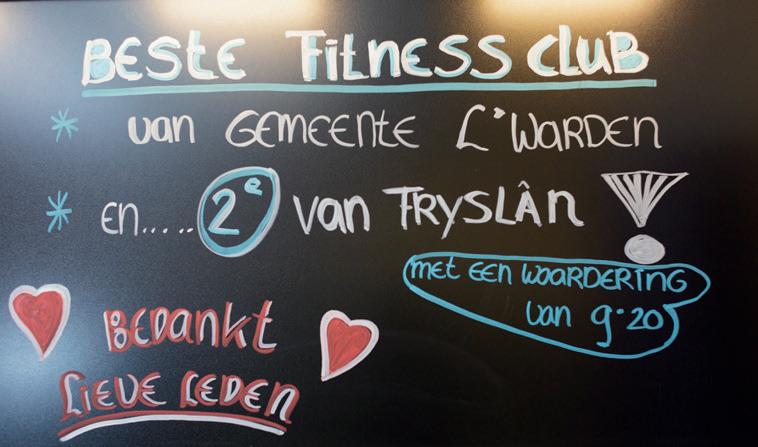 BESTE FITNESS CLUB
* van GEMEENTE L'WARDEN
* en..... 2e van FRYSLÂN !
met een waardering
van 9.20
BEDANKT
LIEVE LEDEN